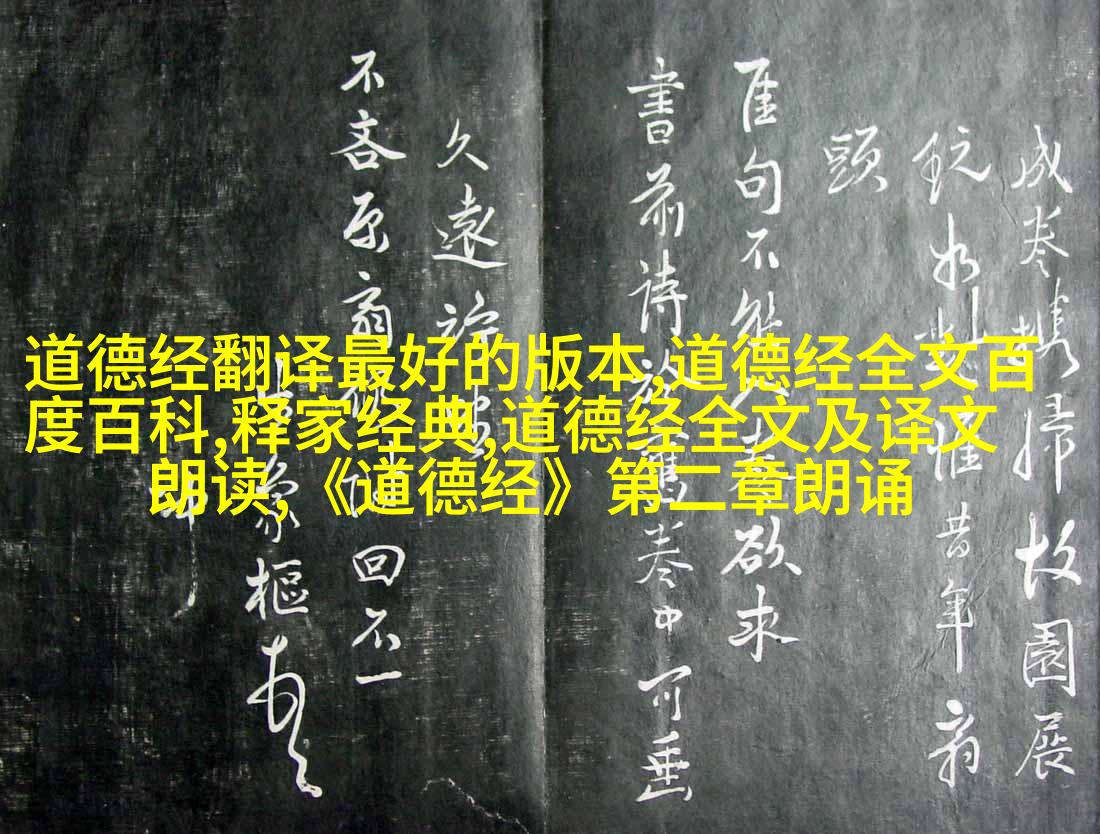 道德经翻译最好的版本,道德经全文百
度百科,释家经典,道德经全文及译文
朗读,《道德经》第二章朗诵
成卷攜歸故園展
玩如對惟昔年翁
頭
佳句不能欲求
書前詩於舊卷中可垂
久遠
不吝原翁回不一
象樞